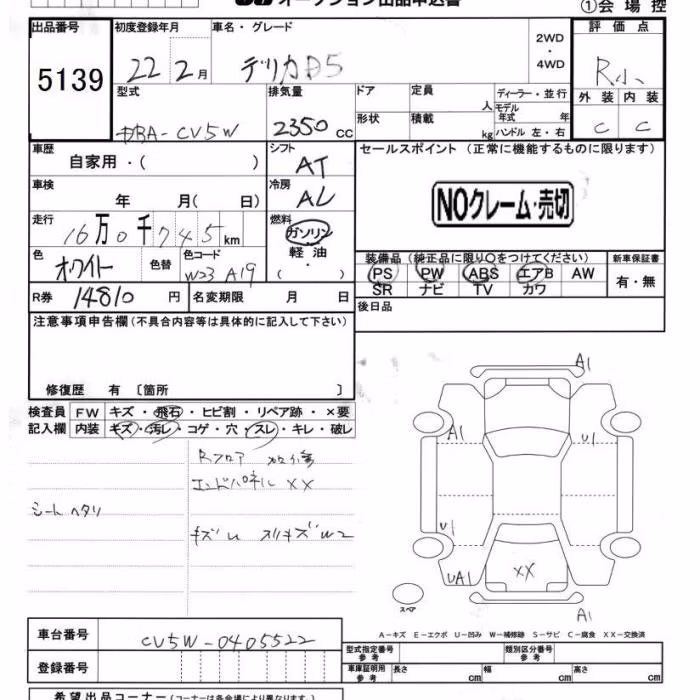 オークション出品申込書 ①会場控
出品番号 初度登録年月 車名・グレード 評価点
5139 22年2月 デリカD5 2WD・4WD R小
型式 排気量 ドア 定員 人 ディーラー・並行 外装 内装
DBA-CV5W 2350cc 形状 積載 kg モデル年式 年 ハンドル 左・右 C C
車歴 自家用・( ) シフト AT セールスポイント (正常に機能するものに限ります)
車検 年 月( 日) 冷房 AC
NOクレーム・売切
走行 16万0千745km 燃料 ガソリン・軽油・( )
色 ホワイト 色替 色コード W23 A19
装備品 (純正品に限り○をつけてください) 新車保証書
PS PW ABS エアB AW 有・無
SR ナビ TV カワ
R券 14810円 名変期限 月 日 後日品
注意事項申告欄 (不具合内容等は具体的に記入して下さい)
修復歴 有 〔箇所 〕
検査員記入欄 FW キズ・飛石・ヒビ割・リペア跡・×要
内装 キズ・汚レ・コゲ・穴・スレ・キレ・破レ
Rフロア
エンドパネル XX
シートヘタリ
キズU スリキズW2
A1
A1 U1
U1
UA1 XX
A1
スペア
A-キズ E-エクボ U-凹み W-補修跡 S-サビ C-腐食 XX-交換済
車台番号 CV5W-0405522
登録番号
型式指定番号 参考 類別区分番号 参考
車庫証明用 参考 長さ cm 幅 cm 高さ cm
希望出品コーナー (コーナーは各会場により異なります)